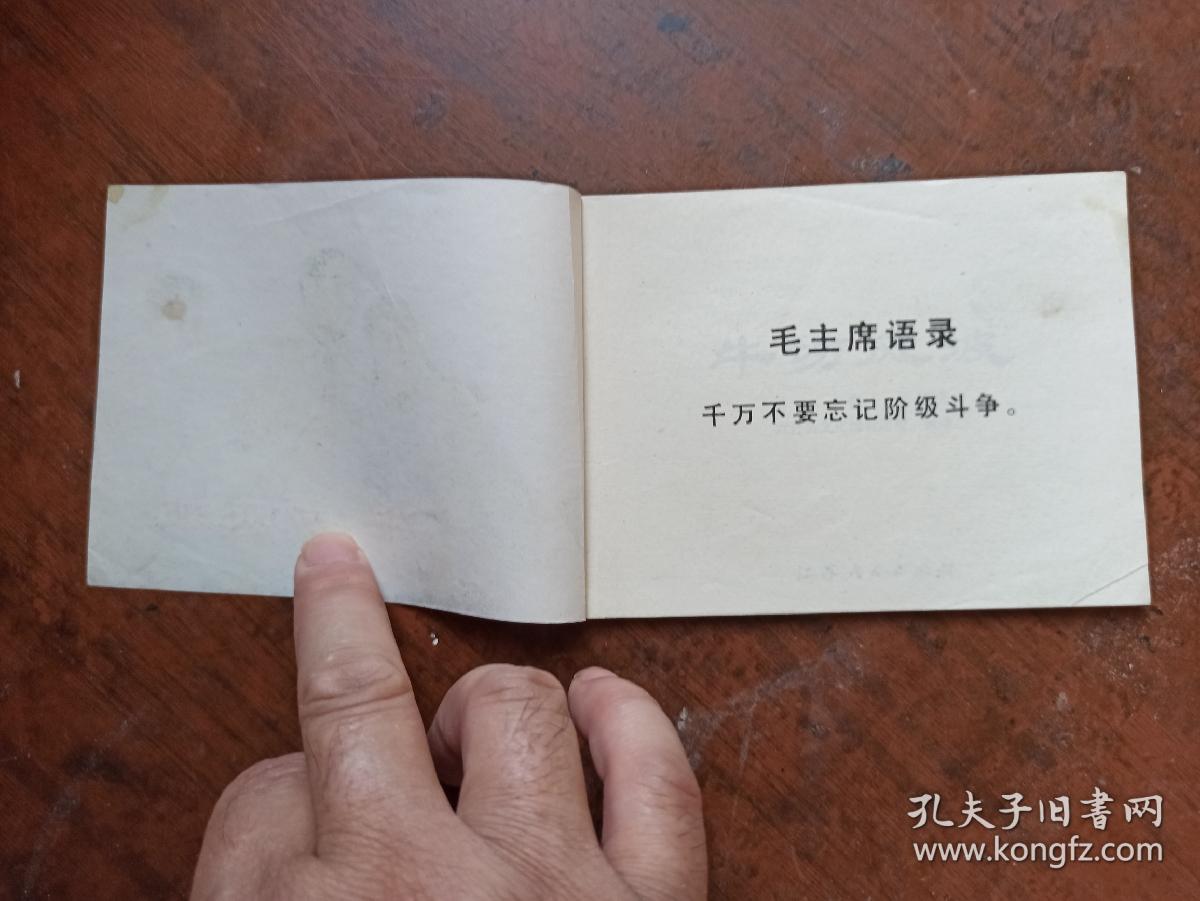 毛主席语录
千万不要忘记阶级斗争。
孔夫子旧书网
www.kongfz.com